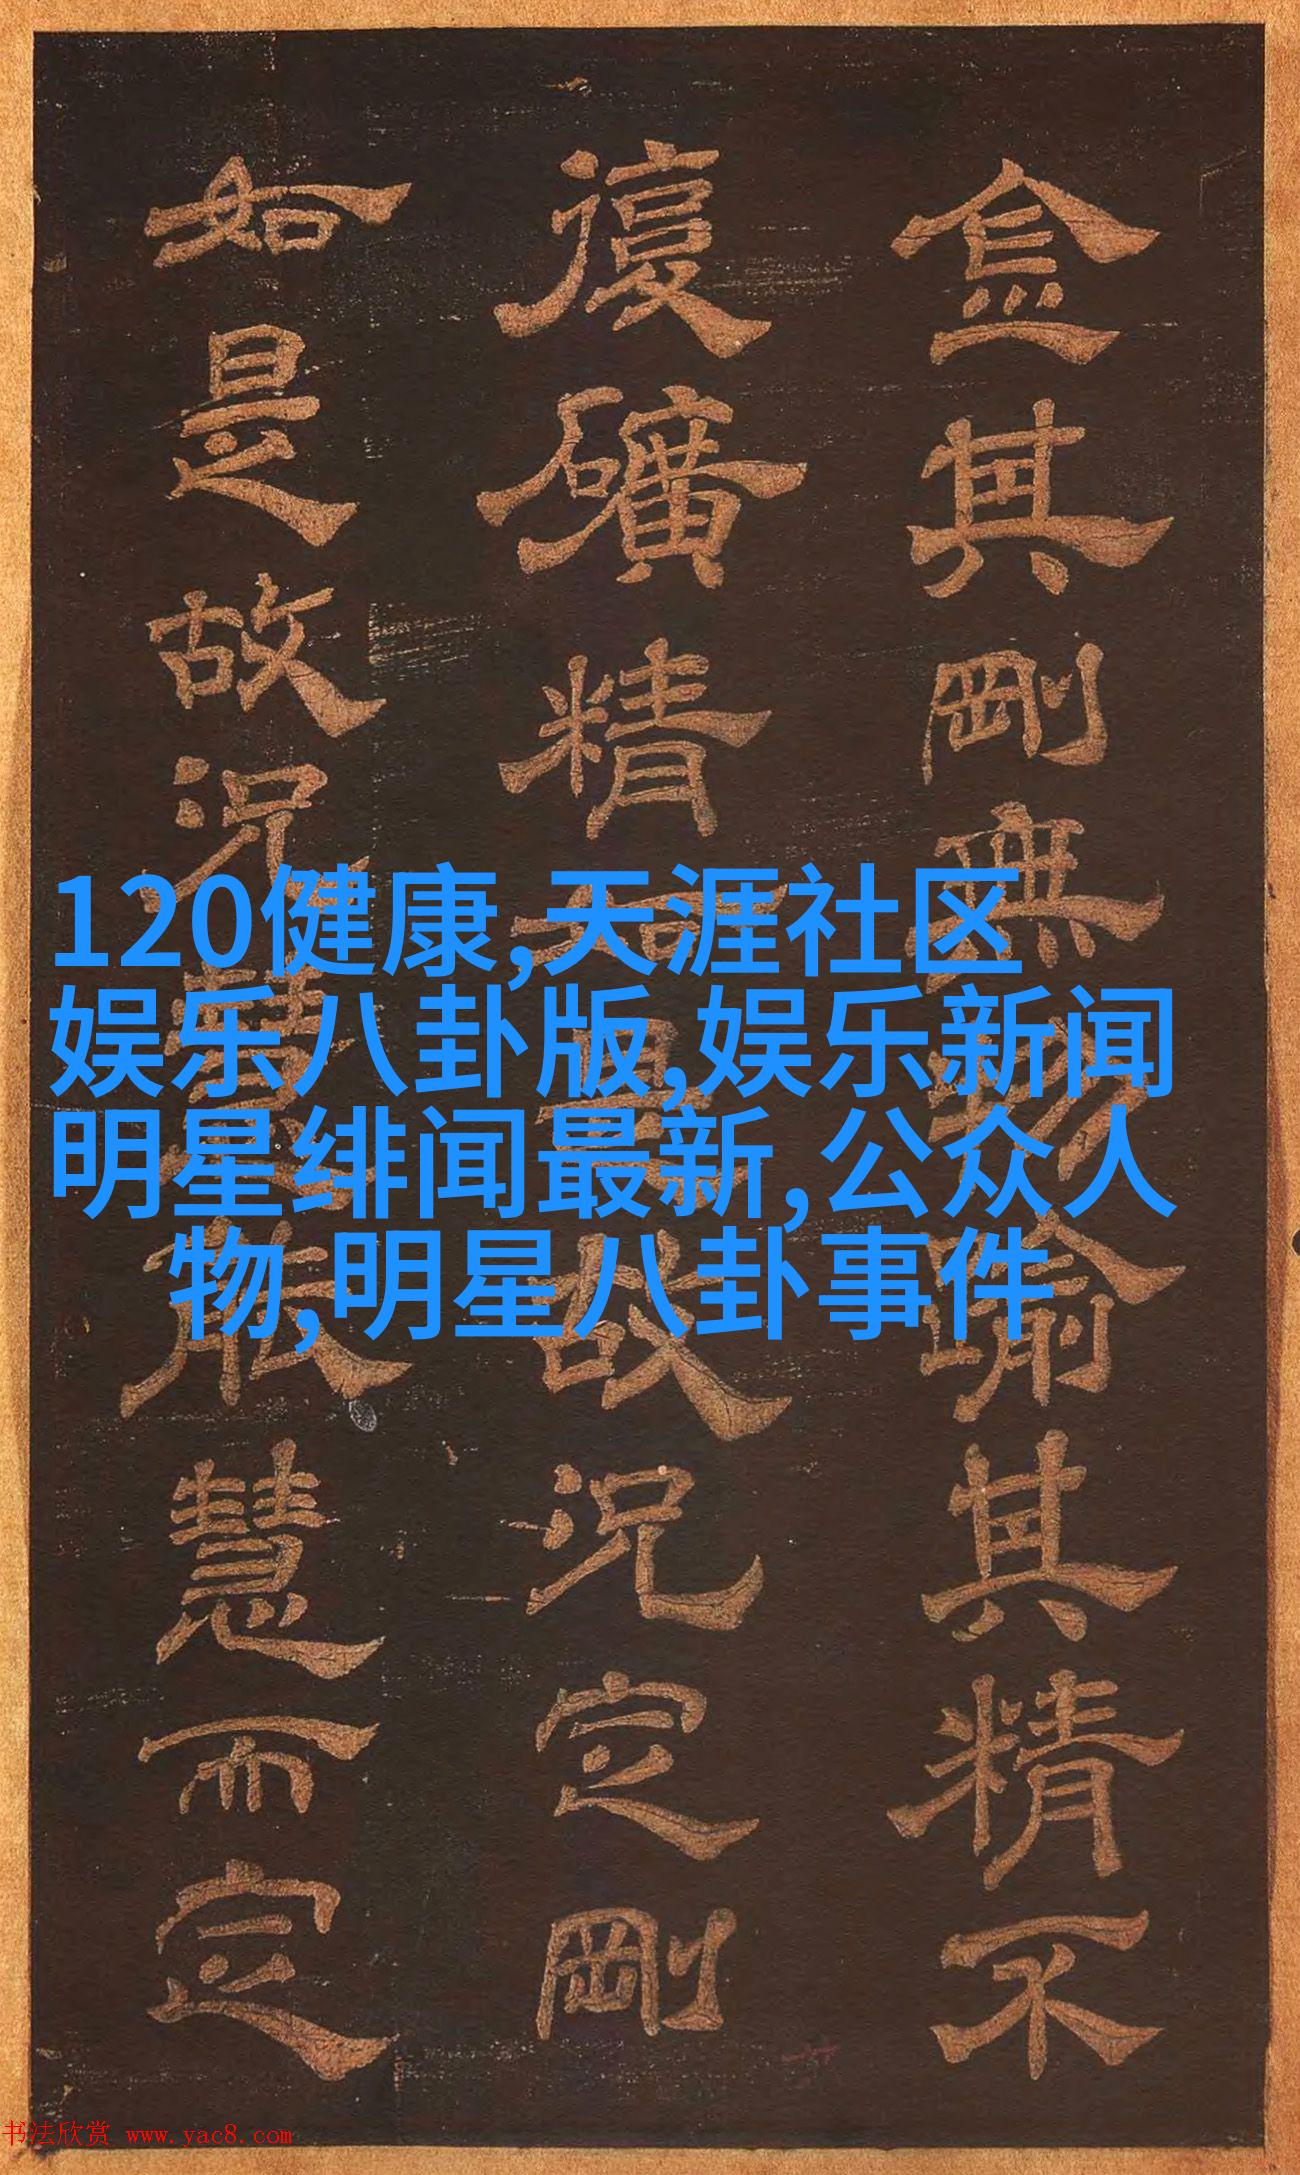 金其剛無踰其精不
復礦精如是故況定剛
如是故況慧能慧而定
120健康,天涯社区
娱乐八卦版,娱乐新闻
明星绯闻最新,公众人
物,明星八卦事件
书法欣赏 www.yac8.com